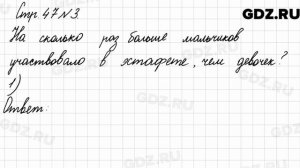 GDZ.RU
Стр. 47 №3
На сколько раз больше мальчиков
участвовало в эстафете, чем девочек?
1)
Ответ: